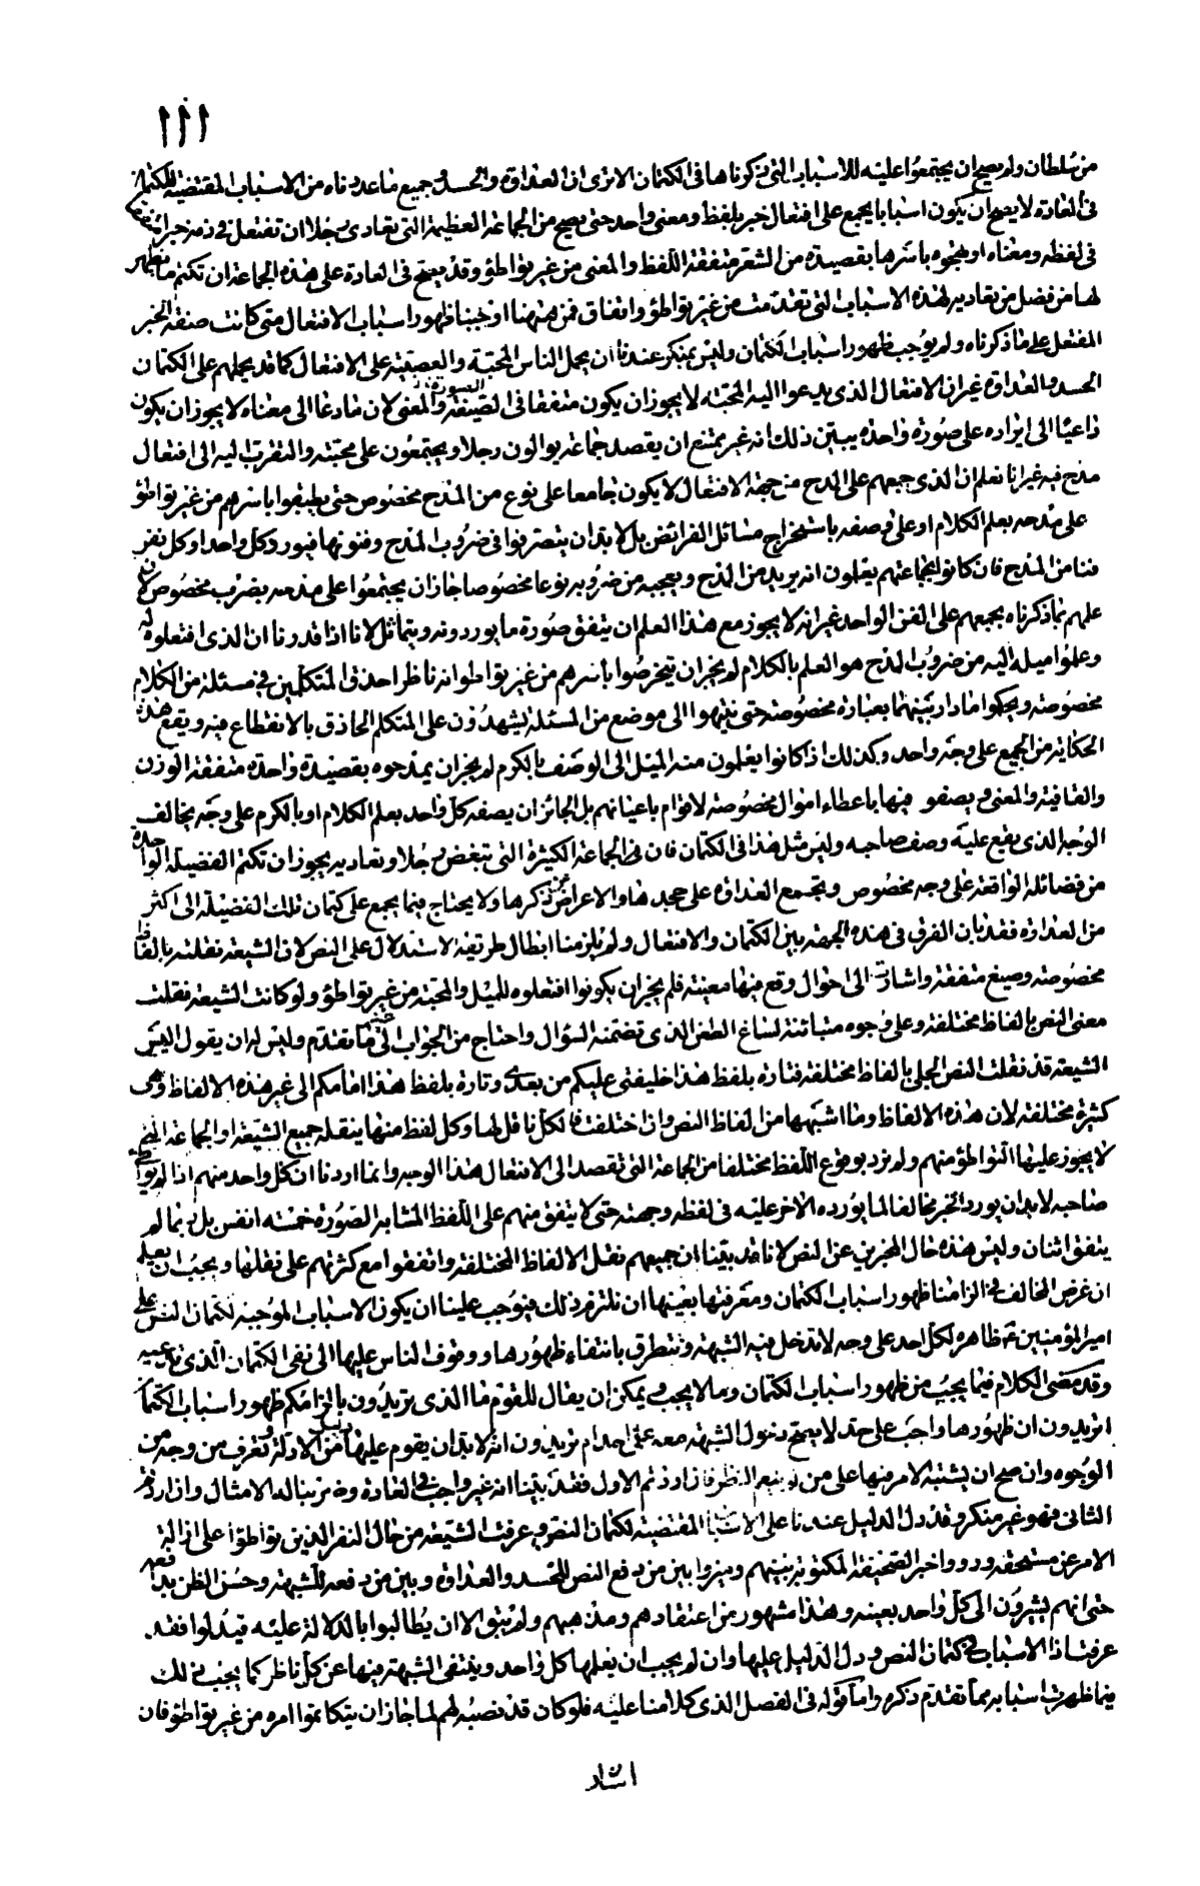 ١١١
من سلطان ولم يصح ان يجتمعوا عليه للاسباب التي ذكرناها في الكتمان الا ترى ان العداوة والحسد وجميع ما عددناه من الاسباب المقتضية للكتمان
في العادة لا يصح ان يكون اسبابا يجمع على افتعال خبر بلفظ ومعنى واحد حتى يصح من الجماعة العظيمة التي تعادي رجلا ان تفتعل في ذمه خبرا
في لفظه ومعناه او يهجوه باسرها بقصيدة من الشعر متفقة اللفظ والمعنى من غير تواطؤ وقد يصح في العادة على هذه الجماعة ان تكتم ما يظهر
لها من فضل من تعاديه لهذه الاسباب التي تقدمت من غير تواطؤ واتفاق فمن ههنا اوجبنا ظهور اسباب الافتعال متى كانت صفة الخبر
المفتعل على ما ذكرناه ولم يوجب ظهور اسباب الكتمان وليس يمنكر عندنا ان يحمل الناس المحبة والعصبية على الافتعال كما قد يحملهم على الكتمان
الحسد والعداوة غير ان الافتعال الذي يدعوا اليه المحبة لا يجوز ان يكون متفقا في الصيغة والصورة والمعنى لان ما دعا الى معناه لا يجوز ان يكون
داعيا الى ايراده على صورة واحدة يبين ذلك انه غير ممتنع ان يقصد جماعة يوالون رجلا ويجتمعون على محبته والتقرب اليه الى افتعال
مدح فيه غير انا نعلم ان الذي جمعهم على المدح من جهة الافتعال لا يكون جامعا على نوع من المدح مخصوص حتى يطبقوا باسرهم من غير تواطؤ
على مدحه بعلم الكلام او على وصفه باستخراج مسائل الفرائض بل لا بد ان يتصرفوا في ضروب المدح وفنونها فيورد كل واحد او كل نفر
فنا من المدح فان كانوا بجماعتهم يعلمون انه يريد من المدح ويعجبه من ضروبه نوعا مخصوصا جاز ان يجتمعوا على مدحه بضرب مخصوص لان
علمهم بما ذكرناه يجمعهم على الفن الواحد غير انه لا يجوز مع هذا العلم ان يتفق صورة ما يوردونه ويتماثل لانا اذا قدرنا ان الذي افتعلوه له
وعلموا ميله اليه من ضروب المدح هو العلم بالكلام لم يجز ان يتخرصوا بأسرهم من غير تواطؤ انه ناظر احد في المتكلمين في مسئلة من الكلام
مخصوصة ويحكوا ما دار بينهما بعبارة مخصوصة حتى ينتهوا الى موضع من المسئلة يشهدون على المتكلم الحاذق بالانقطاع فيه ويقع هذه
الحكاية من الجميع على وجه واحد وكذلك اذا كانوا يعلمون منه الميل الى الوصف بالكرم لم يجز ان يمدحوه بقصيدة واحدة متفقة الوزن
والقافية والمعنى ويصفو فيها باعطاء اموال مخصوصة لاقوام باعيانهم بل الجائز ان يصفه كل واحد بعلم الكلام او بالكرم على وجه يخالف
الوجه الذي يقع عليه وصف صاحبه وليس مثل هذا في الكتمان فان في الجماعة الكثيرة التي تبغض رجلا وتعاديه يجوز ان تكتم الفضيلة الواحدة
من فضائله الواقعة على وجه مخصوص ويجمع العداوة على جحدها والاعراض عن ذكرها ولا يحتاج فيما يجمع على كتمان تلك الفضيلة الى اكثر
من العداوة فقد بان الفرق في هذه الجهة بين الكتمان والافتعال ولم يلزمنا ابطال طريقة الاستدلال على النص لان الشيعة نقلته بالفاظ
مخصوصة وصيغ متفقة واشارت الى احوال وقع فيها معينة فلم يجز ان يكونوا افتعلوه للميل والمحبة من غير تواطؤ ولو كانت الشيعة نقلت
معنى النص بالفاظ مختلفة وعلى وجوه متباينة لساغ الطعن الذي تضمنه السؤال واحتاج من الجواب الى غير ما تقدم وليس له ان يقول اليس
الشيعة قد نقلت النص الجلي بالفاظ مختلفة فتارة بلفظ هذا خليفتي عليكم من بعدي وتارة بلفظ هذا امامكم الى غير هذه الالفاظ وهي
كثيرة مختلفة لان هذه الالفاظ وما اشبهها من الفاظ النص وان اختلفت فالكل ناقل لها وكل لفظ منها ينقله جميع الشيعة او الجماعة التي
لا يجوز عليها التواطؤ منهم ولم نرد بوقوع اللفظ مختلفا من الجماعة التي تقصد الى الافتعال هذا الوجه وانما اردنا ان كل واحد منهم اذا لم يواطئ
صاحبه لا بد ان يورد الخبر مخالفا لما يورده الآخر عليه في لفظه وجهته حتى لا يتفق منهم على اللفظ المشابه الصورة خمسة انفس بل ربما لم
يتفق اثنان وليس هذه حال المخبرين عن النص لانا قد بينا ان جميعهم نقل الالفاظ المختلفة واتفقوا مع كثرتهم على نقلها ويجب ان يعلم
ان غرض المخالف في الزامنا ظهور اسباب الكتمان ومعرفتها بعينها ان نلتزم ذلك فيوجب علينا ان يكون الاسباب الموجبة لكتمان النص على
امير المؤمنين ع ظاهرة لكل احد على وجه لا تدخل فيه الشبهة ويتطرق بانتفاء ظهورها ووقوف الناس عليها الى نفي الكتمان الذي ندعيه
وقد مضى الكلام فيما يجب من ظهور اسباب الكتمان وما لا يجب ويمكن ان يقال للقوم ما الذي تريدون بالزامكم ظهور اسباب الكتمان
اتريدون ان ظهورها واجب على حد لا يصح دخول الشبهة معه على احد ام تريدون انه لا بد ان يقوم عليها دليل من الادلة وتعرف من وجه من
الوجوه وان صح ان يشتبه الامر فيها على من لم ينعم النظر فان اردتم الاول فقد بينا انه غير واجب في العادة وضربنا له الامثال وان اردتم
الثاني فهو غير منكر وقد دل الدليل عندنا على الاسباب المقتضية لكتمان النص وعرفت الشيعة من حال النفر الذين تواطؤا على ازالة
الامر عن مستحقه ورووا خبر الصحيفة المكتوبة بينهم وميزوا بين من دفع النص للحسد والعداوة وبين من دفعه للشبهة وحسن الظن بدافعه
حتى انهم يشيرون الى كل واحد بعينه وهذا مشهور من اعتقادهم ومذهبهم ولم يبق الا ان يطالبوا بالدلالة عليه فيدلوا فقد
عرفت اذا الاسباب في كتمان النص ودل الدليل عليها وان لم يجب ان يعلمها كل واحد وينتفي الشبهة فيها عن كل ناظر كما يجب في ذلك
فيما ظهرت اسبابه مما تقدم ذكره واما قوله في الفصل الذي كلامنا عليه فلو كان قد نصبه لهم لما جاز ان يتكاتموا امره من غير تواطؤ فان